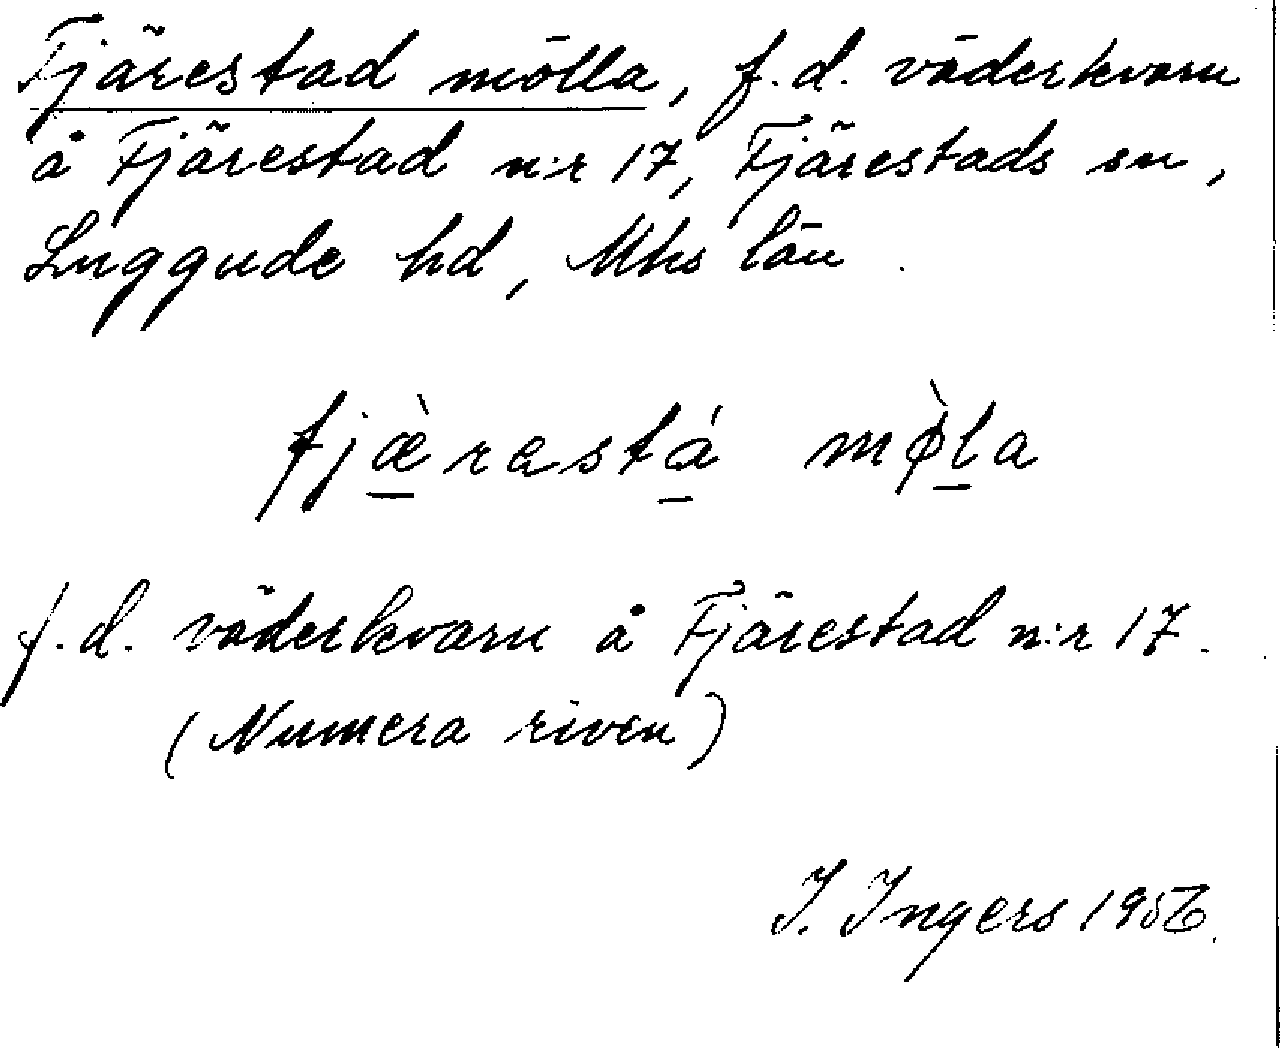 Fjärestad mölla, f.d. väderkvarn
å Fjärestad n:r 17, Fjärestads sn,
Luggude hd, Mhs län.
fjæ̀restá mø̀la
f.d. väderkvarn å Fjärestad n:r 17.
(Numera riven)
I. Ingers 1956.